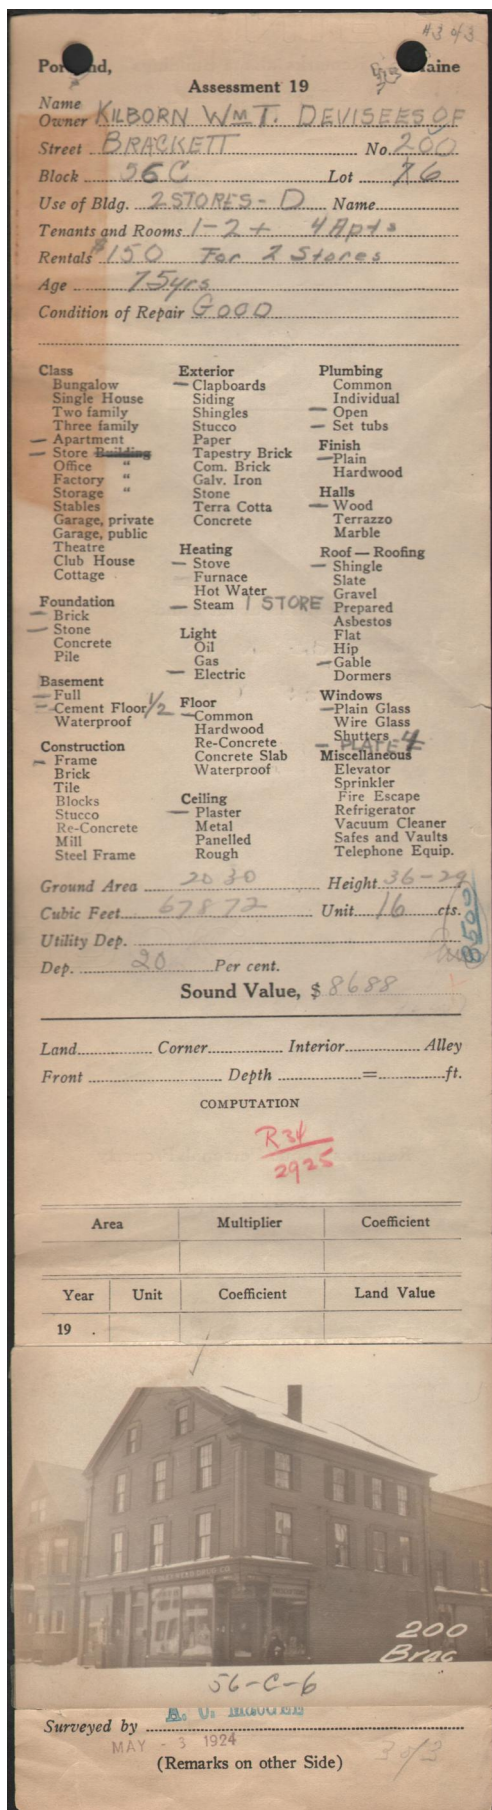 #3 of 3
Portland, Maine
Assessment 19
Name
Owner KILBORN WM T. DEVISEES OF
Street BRACKETT No. 200
Block 56 C Lot 76
Use of Bldg. 2 STORES - D Name
Tenants and Rooms 1-2 + 4 Apts
Rentals $150 For 2 Stores
Age 75 yrs
Condition of Repair GOOD
Class
Bungalow
Single House
Two family
Three family
— Apartment
— Store Building
Office "
Factory "
Storage "
Stables
Garage, private
Garage, public
Theatre
Club House
Cottage
Foundation
— Brick
— Stone
Concrete
Pile
Basement
— Full
— Cement Floor 1/2
Waterproof
Construction
— Frame
Brick
Tile
Blocks
Stucco
Re-Concrete
Mill
Steel Frame
Exterior
— Clapboards
Siding
Shingles
Stucco
Paper
Tapestry Brick
Com. Brick
Galv. Iron
Stone
Terra Cotta
Concrete
Heating
— Stove
Furnace
Hot Water
— Steam 1 STORE
Light
Oil
Gas
— Electric
Floor
— Common
Hardwood
Re-Concrete
Concrete Slab
Waterproof
Ceiling
— Plaster
Metal
Panelled
Rough
Plumbing
Common
Individual
— Open
— Set tubs
Finish
— Plain
Hardwood
Halls
— Wood
Terrazzo
Marble
Roof — Roofing
— Shingle
Slate
Gravel
Prepared
Asbestos
Flat
Hip
— Gable
Dormers
Windows
— Plain Glass
Wire Glass
Shutters
— PLATE 4
Miscellaneous
Elevator
Sprinkler
Fire Escape
Refrigerator
Vacuum Cleaner
Safes and Vaults
Telephone Equip.
Ground Area 2030 Height 36-29
Cubic Feet 67872 Unit 16 cts.
8500
Utility Dep.
Dep. 20 Per cent.
Sound Value, $ 8688
Land Corner Interior Alley
Front Depth = ft.
COMPUTATION
R34
2925
Area Multiplier Coefficient
Year Unit Coefficient Land Value
19 .
200
Brac
56-C-6
Surveyed by A. U. McGee
MAY - 3 1924
3 of 3
(Remarks on other Side)